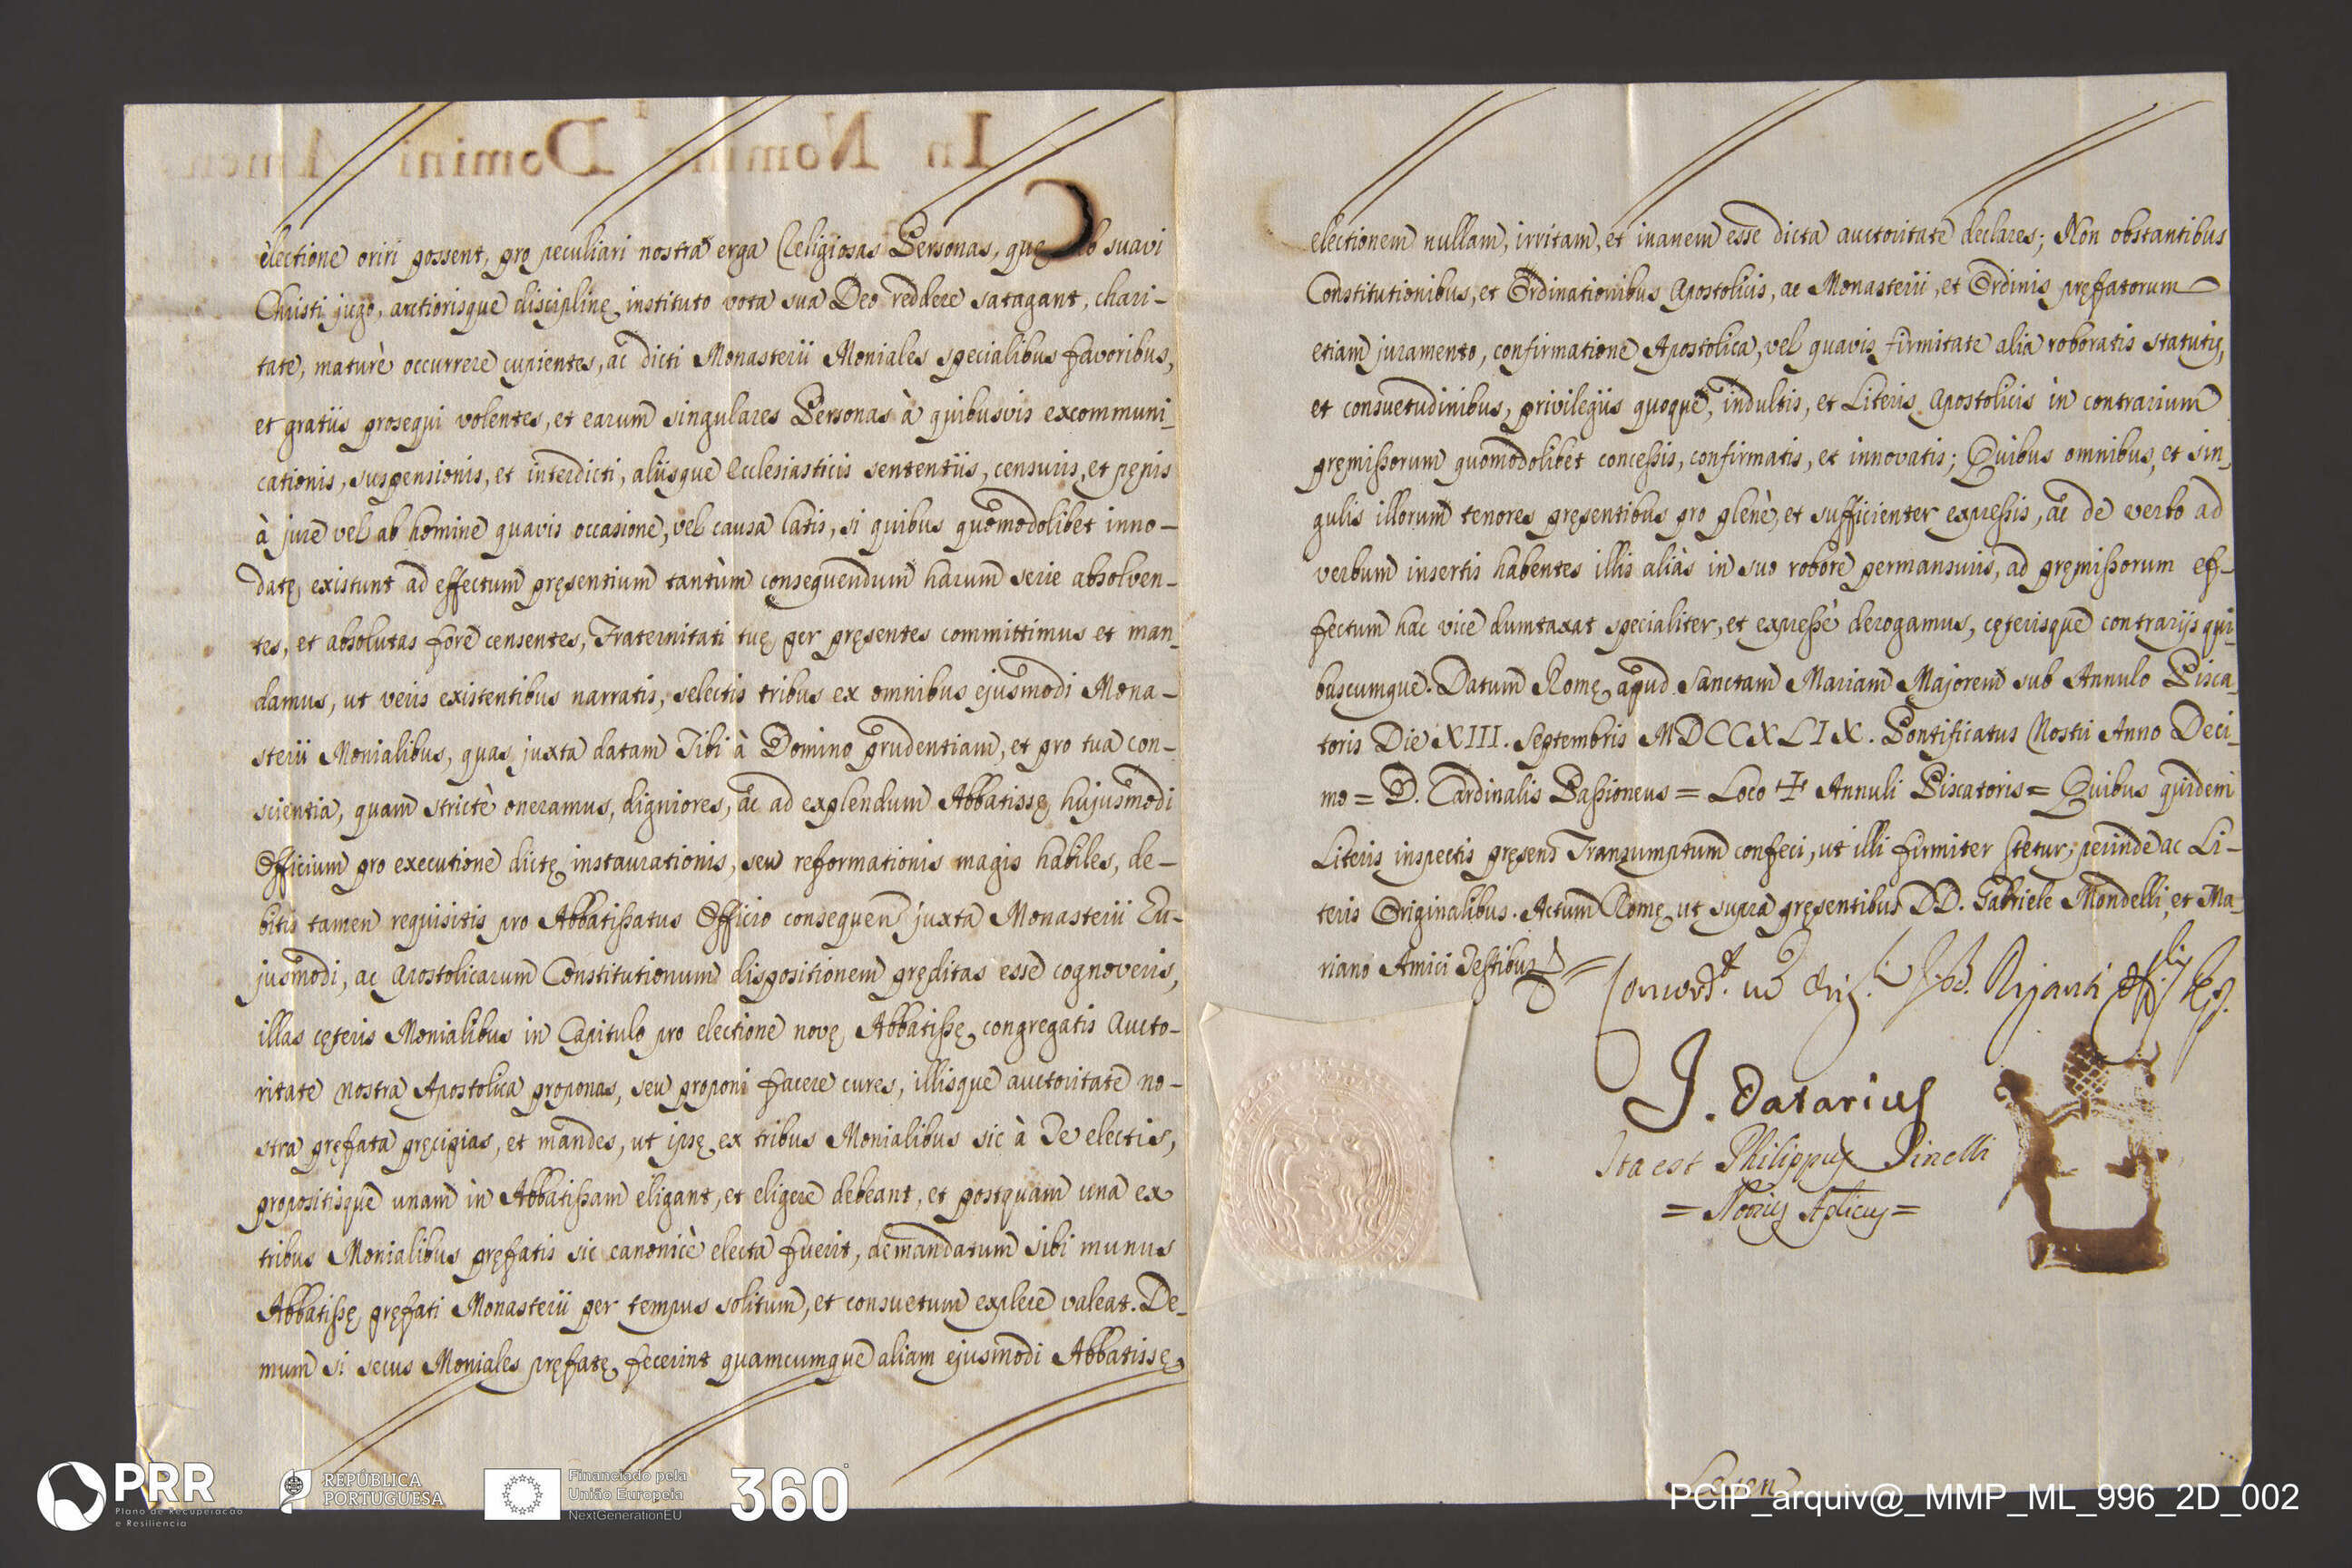 electione oriri possent, pro peculiari nostra erga Religiosas Personas, quę sub suavi
Christi jugo, arctiorisque disciplinę instituto vota sua Deo reddere satagant, chari-
tate, maturè occurrere cupientes, ac dicti Monasterii Moniales specialibus favoribus,
et gratiis prosequi volentes, et earum singulares Personas à quibusvis excommuni-
cationis, suspensionis, et interdicti, aliisque Ecclesiasticis sententiis, censuris, et pęnis
à jure vel ab homine quavis occasione, vel causa latis, si quibus quomodolibet inno-
datę existunt ad effectum pręsentium tantùm consequendum harum serie absolven-
tes, et absolutas fore censentes, Fraternitati tuę per pręsentes committimus et man-
damus, ut veris existentibus narratis, selectis tribus ex omnibus ejusmodi Mona-
sterii Monialibus, quas juxta datam Tibi à Domino prudentiam, et pro tua con-
scientia, quam strictè oneramus, digniores, ac ad explendum Abbatissę hujusmodi
Officium pro executione dictę instaurationis, seu reformationis magis habiles, de-
bitis tamen requisitis pro Abbatissatus Officio consequen juxta Monasterii Eu-
jusmodi, ac Apostolicarum Constitutionum dispositionem pręditas esse cognoveris,
illas cęteris Monialibus in Capitulo pro electione novę Abbatissę congregatis Aucto-
ritate nostra Apostolica proponas, seu proponi facere cures, illisque auctoritate no-
stra pręfata pręcipias, et mandes, ut ipsę ex tribus Monialibus sic à Te electis,
propositisque unam in Abbatissam eligant, et eligere debeant, et postquam una ex
tribus Monialibus pręfatis sic canonicè electa fuerit, demandatum sibi munus
Abbatissę pręfati Monasterii per tempus solitum, et consuetum explere valeat. De-
mum si secus Moniales pręfatę fecerint quamcumque aliam ejusmodi Abbatissę
electionem nullam, irritam, et inanem esse dicta auctoritate declares; Non obstantibus
Constitutionibus, et Ordinationibus Apostolicis, ac Monasterii, et Ordinis pręfatorum
etiam juramento, confirmatione Apostolica, vel quavis firmitate alia roboratis statutis,
et consuetudinibus, privilegiis quoque, indultis, et Literis Apostolicis in contrarium
pręmissorum quomodolibet concessis, confirmatis, et innovatis; Quibus omnibus, et sin-
gulis illorum tenores pręsentibus pro plenè, et sufficienter expressis, ac de verbo ad
verbum insertis habentes illis aliàs in suo robore permansuris, ad pręmissorum ef-
fectum hac vice dumtaxat specialiter, et expressè derogamus, cęterisque contrarijs qui-
buscumque. Datum Romę apud Sanctam Mariam Majorem sub Annulo Pisca-
toris Die XIII. Septembris MDCCXLIX. Pontificatus Nostri Anno Deci-
mo = D. Cardinalis Passioneus = Loco ✠ Annuli Piscatoris = Quibus quidem
Literis inspectis pręsens Transumptum confeci, ut illi firmiter stetur, perinde ac Li-
teris Originalibus. Actum Romę ut supra pręsentibus DD. Gabriele Mondelli, et Ma-
riano Amici Testibus
J. Datarius
Ita est Philippus Pinelli
= Norius Aplicus =
In Nomine Domini Amen
PRR
Plano de Recuperação
e Resiliência
REPÚBLICA
PORTUGUESA
Financiado pela
União Europeia
NextGenerationEU
360°
PCIP_arquiv@_MMP_ML_996_2D_002